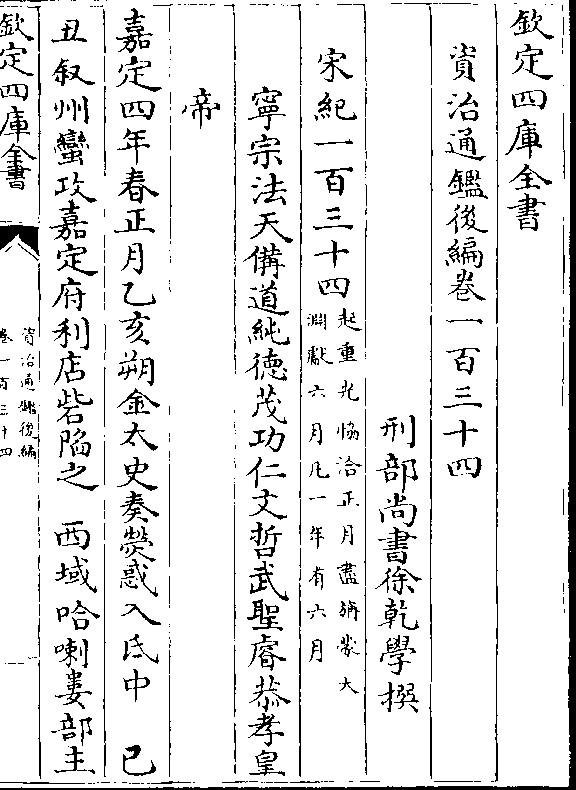 欽定四庫全書
資治通鑑後編卷一百三十四
刑部尚書徐乾學撰
宋紀一百三十四
起重光恊洽正月盡旃蒙大
淵獻六月凡一年有六月
寧宗法天備道純德茂功仁文哲武聖睿恭孝皇
帝
嘉定四年春正月乙亥朔金太史奏熒惑入氐中　己
丑叙州蠻攻嘉定府利店砦陷之　西域哈喇婁部主
欽定四庫全書
資治通鑑後編
卷一百三十四